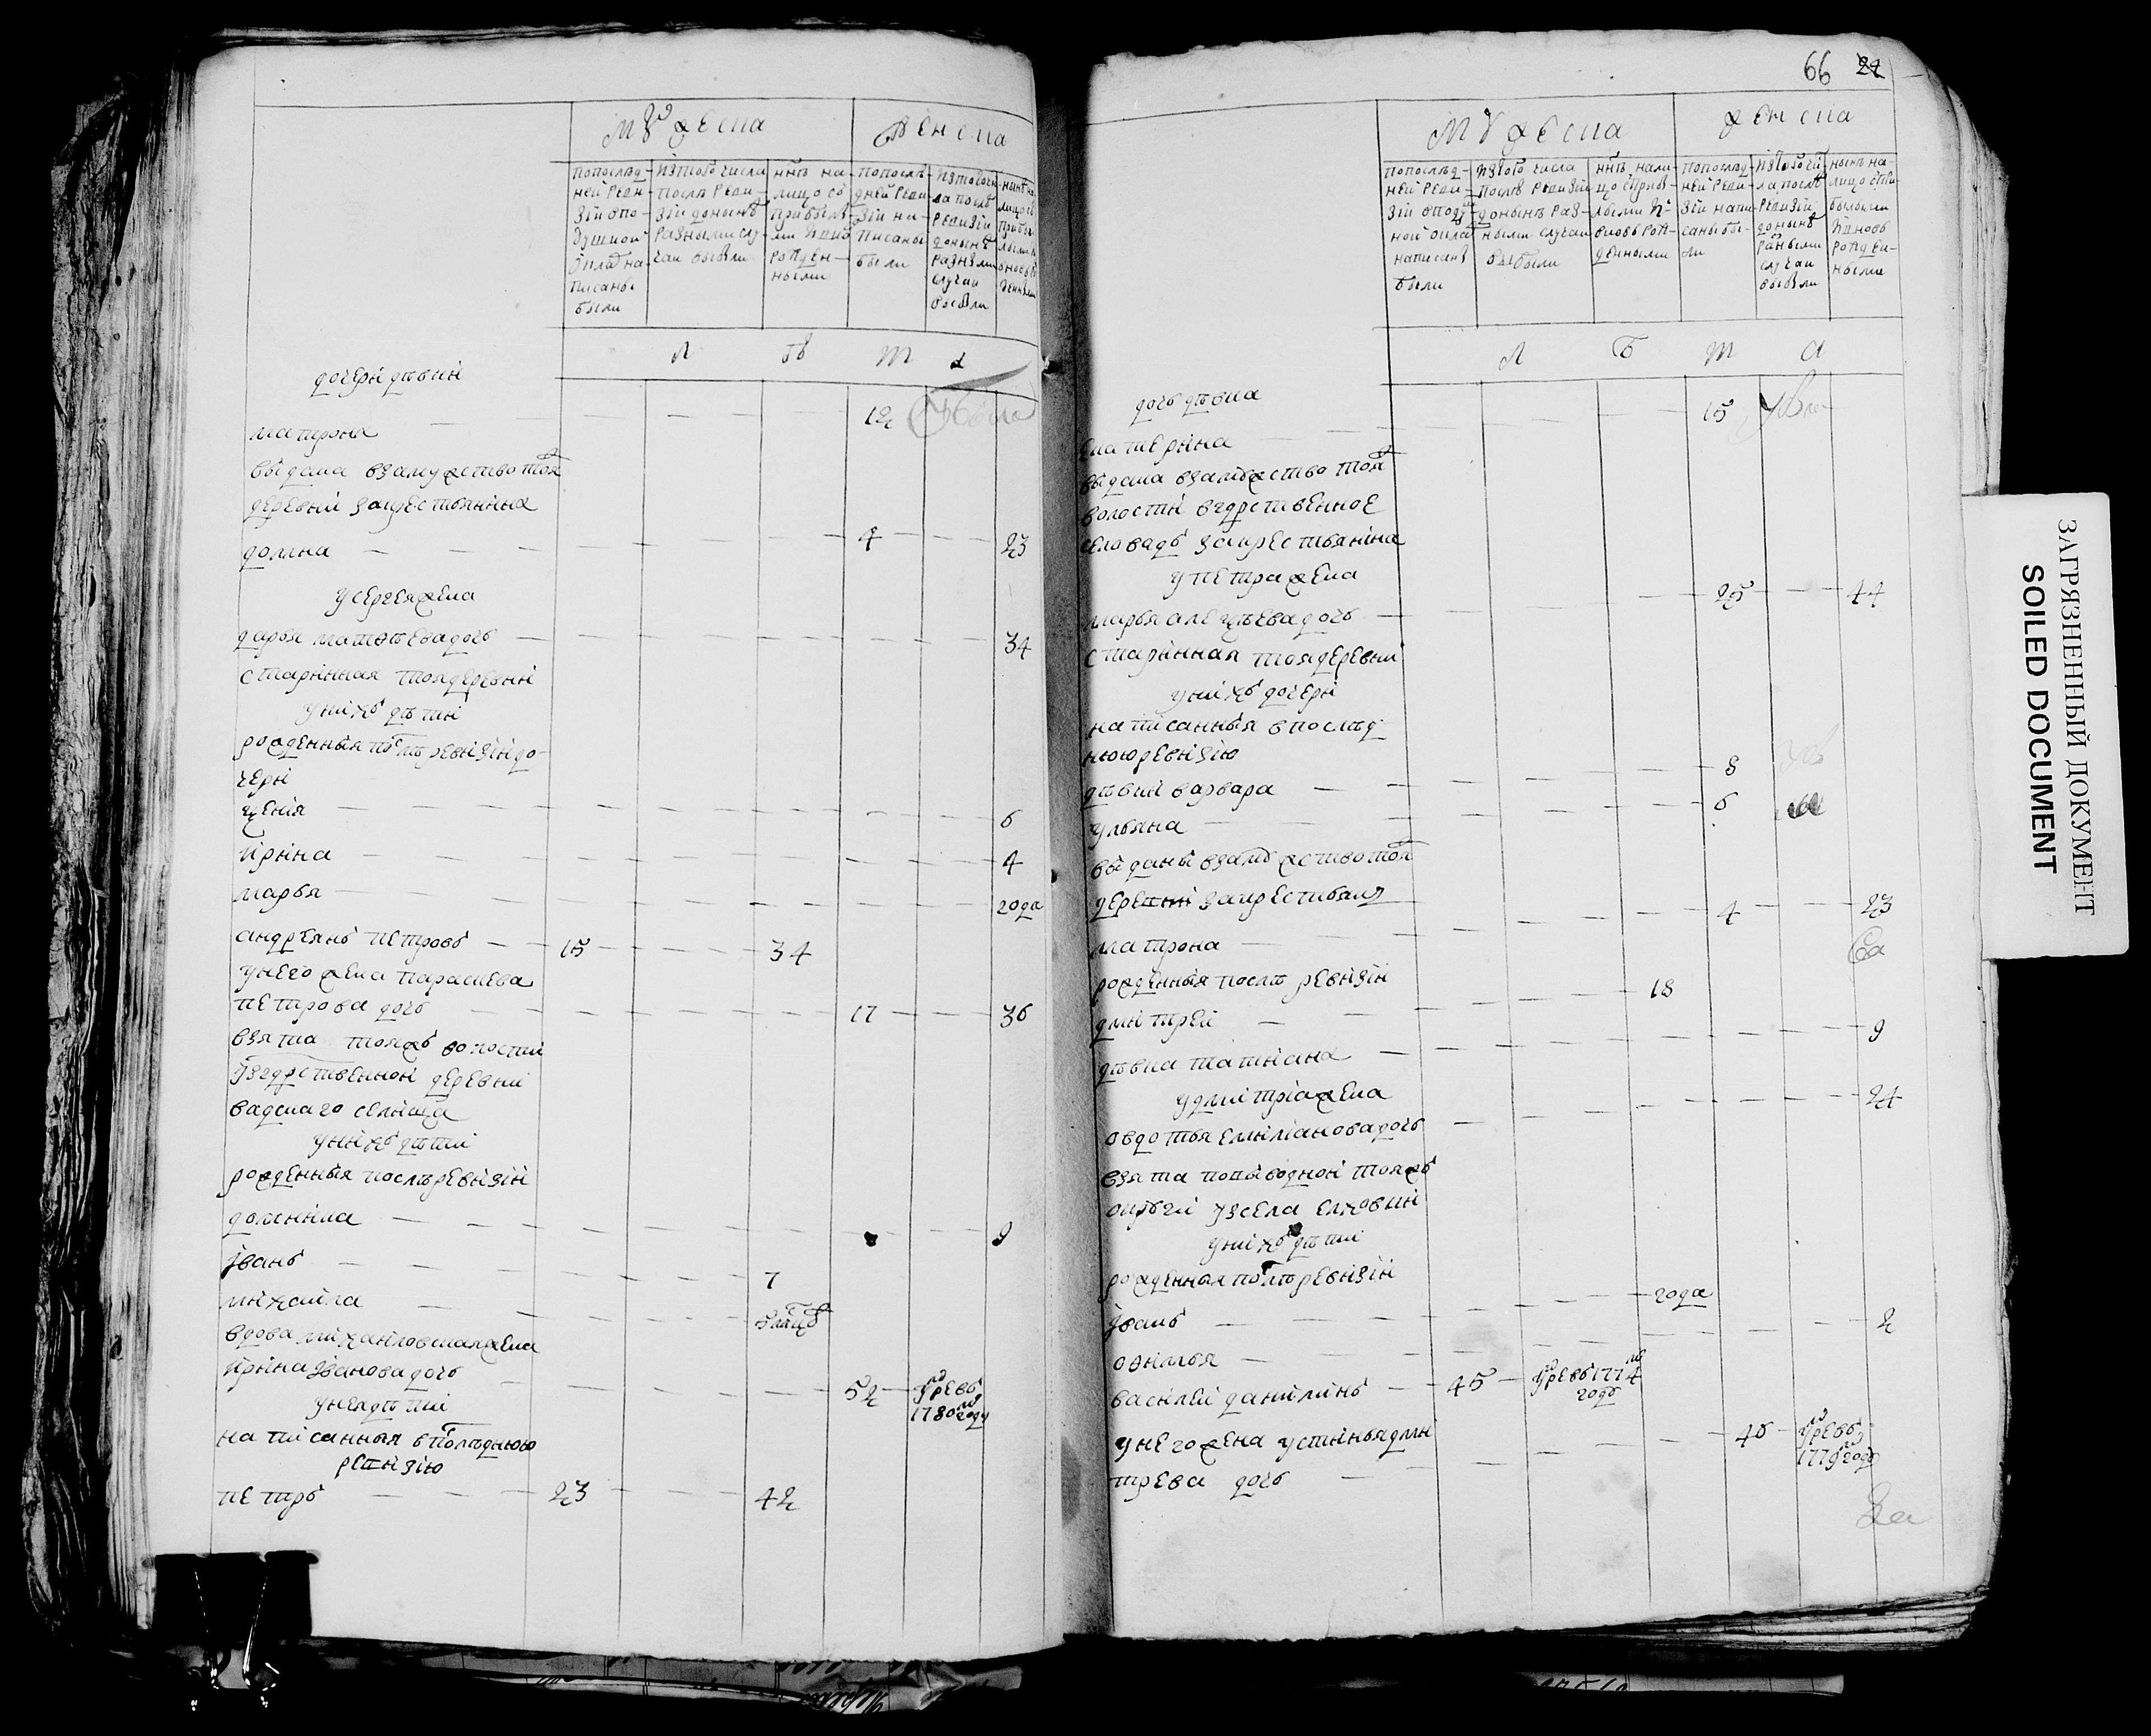 мужеска
женска
попослѣд-
ней реви-
зіи впо-
душной
окладъ на-
писаны
были
изтого числа
послѣ реви-
зіи донынѣ
разными слу-
чаи выбыли
ннѣ на-
лицо со
прибыл-
ми вновь
рожден-
ными
попослѣ-
дней реви-
зіи на-
писаны
были
изтогочи-
ла послѣ
ревизіи
донынѣ
разными
случаи
выбыли
лѣта
дочери девки
матрона — 12
выдана взамужество тояж
деревни закрестьянина
домна — 4 — 23
усергея жена
дарья матвѣева дочь — 34
старинная тояж деревни
унихъ дѣти
рожденныя послѣ ревизіи до-
чери
ксенія — 6
ирина — 4
марья — года
андреянъ петровъ — 15 — 34
унего жена параскева
петрова дочь — 17 — 36
взята тояжъ волости
изгдрственной деревни
вадскаго селища
унихъ дѣти
рожденныя послѣ ревизіи
домника — 9
іванъ — 7
михаила — 5 мцъ
вдова михаиловская жена
ирина іванова дочь — 52 — умре въ
1780 году
унея дѣти
написанныя впослѣднюю
ревизію
петръ — 23 — 42
66 24
мужеска
женска
попослѣд-
ней реви-
зіи вподуш-
ной окла
написаны
были
изтого числа
послѣ ревизіи
донынѣ раз-
ными случаи
выбыли
ннѣ нали-
цо сприб-
лыми и
вновь рож-
денными
попослѣд-
ней реви-
зіи напи-
саны бы-
ли
изтогочи-
ла послѣ
ревизіи
донынѣ
разными
случаи
выбыли
нынѣ на-
лицо спри-
былыми
ивновь
рожден-
ными
лѣта
дочь дѣвка
екатерина — 15
выдана взамужество тояж
волости вгдрственное
село вадъ закрестьянина
упетра жена — 25 — 44
марья алексѣева дочь
старинная тояж деревни
унихъ дочери
написанныя впослѣд-
нюю ревизію
дѣвки варвара — 8
ульяна — 6
выданы взамужество тояж
деревни закрестьянъ
матрона — 4 — 23
рожденныя послѣ ревизіи
дмитрей — 18
дѣвка татиана — 9
удмитрія жена — 24
овдотья емиліанова дочь
взята повыводной тояжъ
округи ізсела елховки
унихъ дѣти
рожденныя послѣ ревизіи
іванъ — года
офимья — 2
василей данилинъ — 45 — умре въ 1774 м
годѣ
унего жена устинья дми — 46 — умре въ
1779 годѣ
трева дочь
ЗАГРЯЗНЕННЫЙ ДОКУМЕНТ
SOILED DOCUMENT